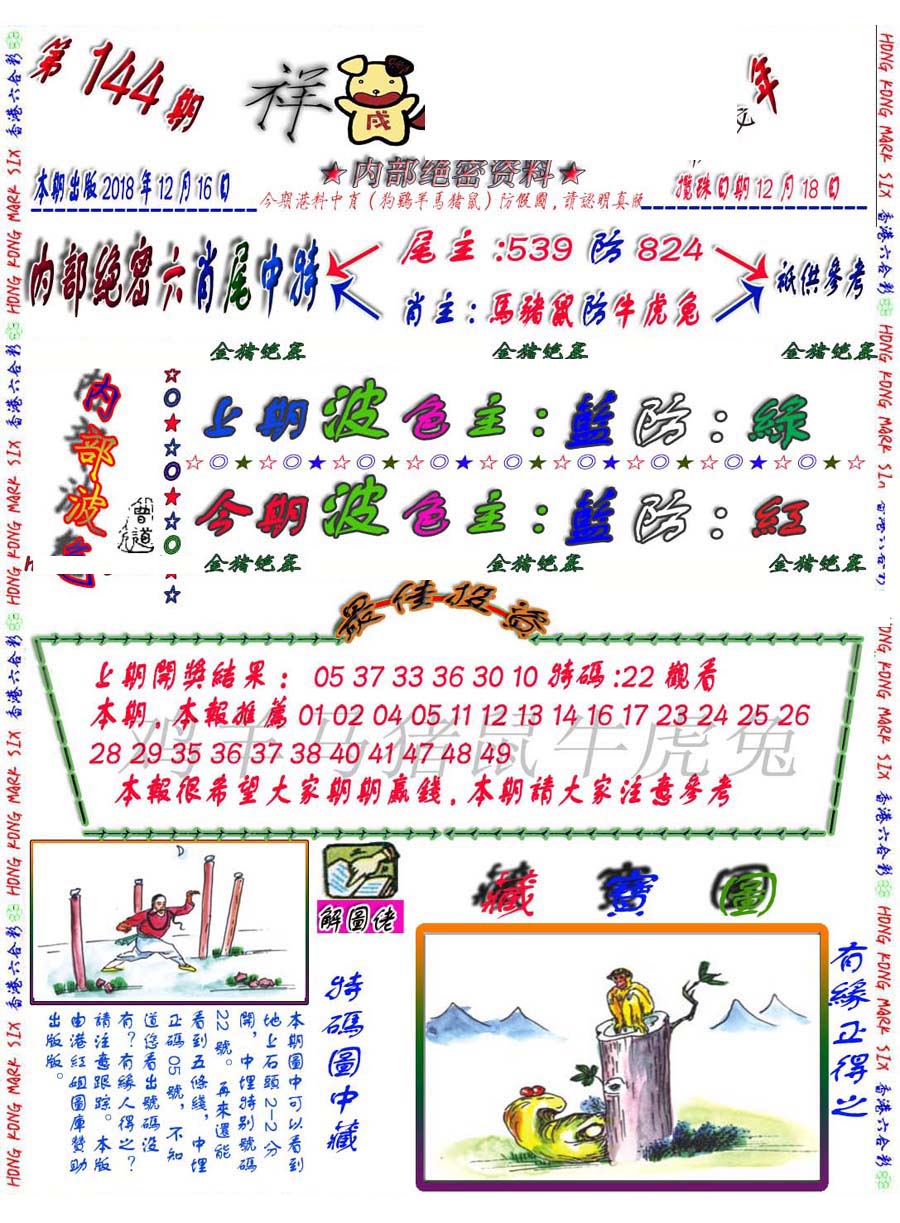 第144期
祥
戌
年
本期出版2018年12月16日
★内部绝密资料★
今期港料中肖(狗鷄羊馬猪鼠)防假圖,請認明真版
攪珠日期12月18日
内部绝密六肖尾中特
尾主:539防824
肖主:馬豬鼠防牛虎兔
祇供參考
金猪绝密 金猪绝密 金猪绝密
内部波色
曾道
上期波色主:藍防:綠
今期波色主:藍防:紅
金猪绝密 金猪绝密 金猪绝密
最佳投註
上期開獎結果: 05 37 33 36 30 10 特碼:22 觀看
本期.本報推薦 01 02 04 05 11 12 13 14 16 17 23 24 25 26
28 29 35 36 37 38 40 41 47 48 49
鸡羊马猪鼠牛虎兔
本報很希望大家期期贏錢.本期請大家注意參考
解圖佬
藏寶圖
特碼圖中藏
有緣正得之
本期圖中可以看到
地上石頭2—2分
開,中埋特别號碼
22號。再來還能
看到五條綫,中埋
正碼05號,不知
道您看出號碼没
有?有緣人得之?
請注意跟踪。本版
由港紅姐圖庫贊助
出版版。
HONG KONG MARK SIX 香港六合彩
HONG KONG MARK SIX 香港六合彩